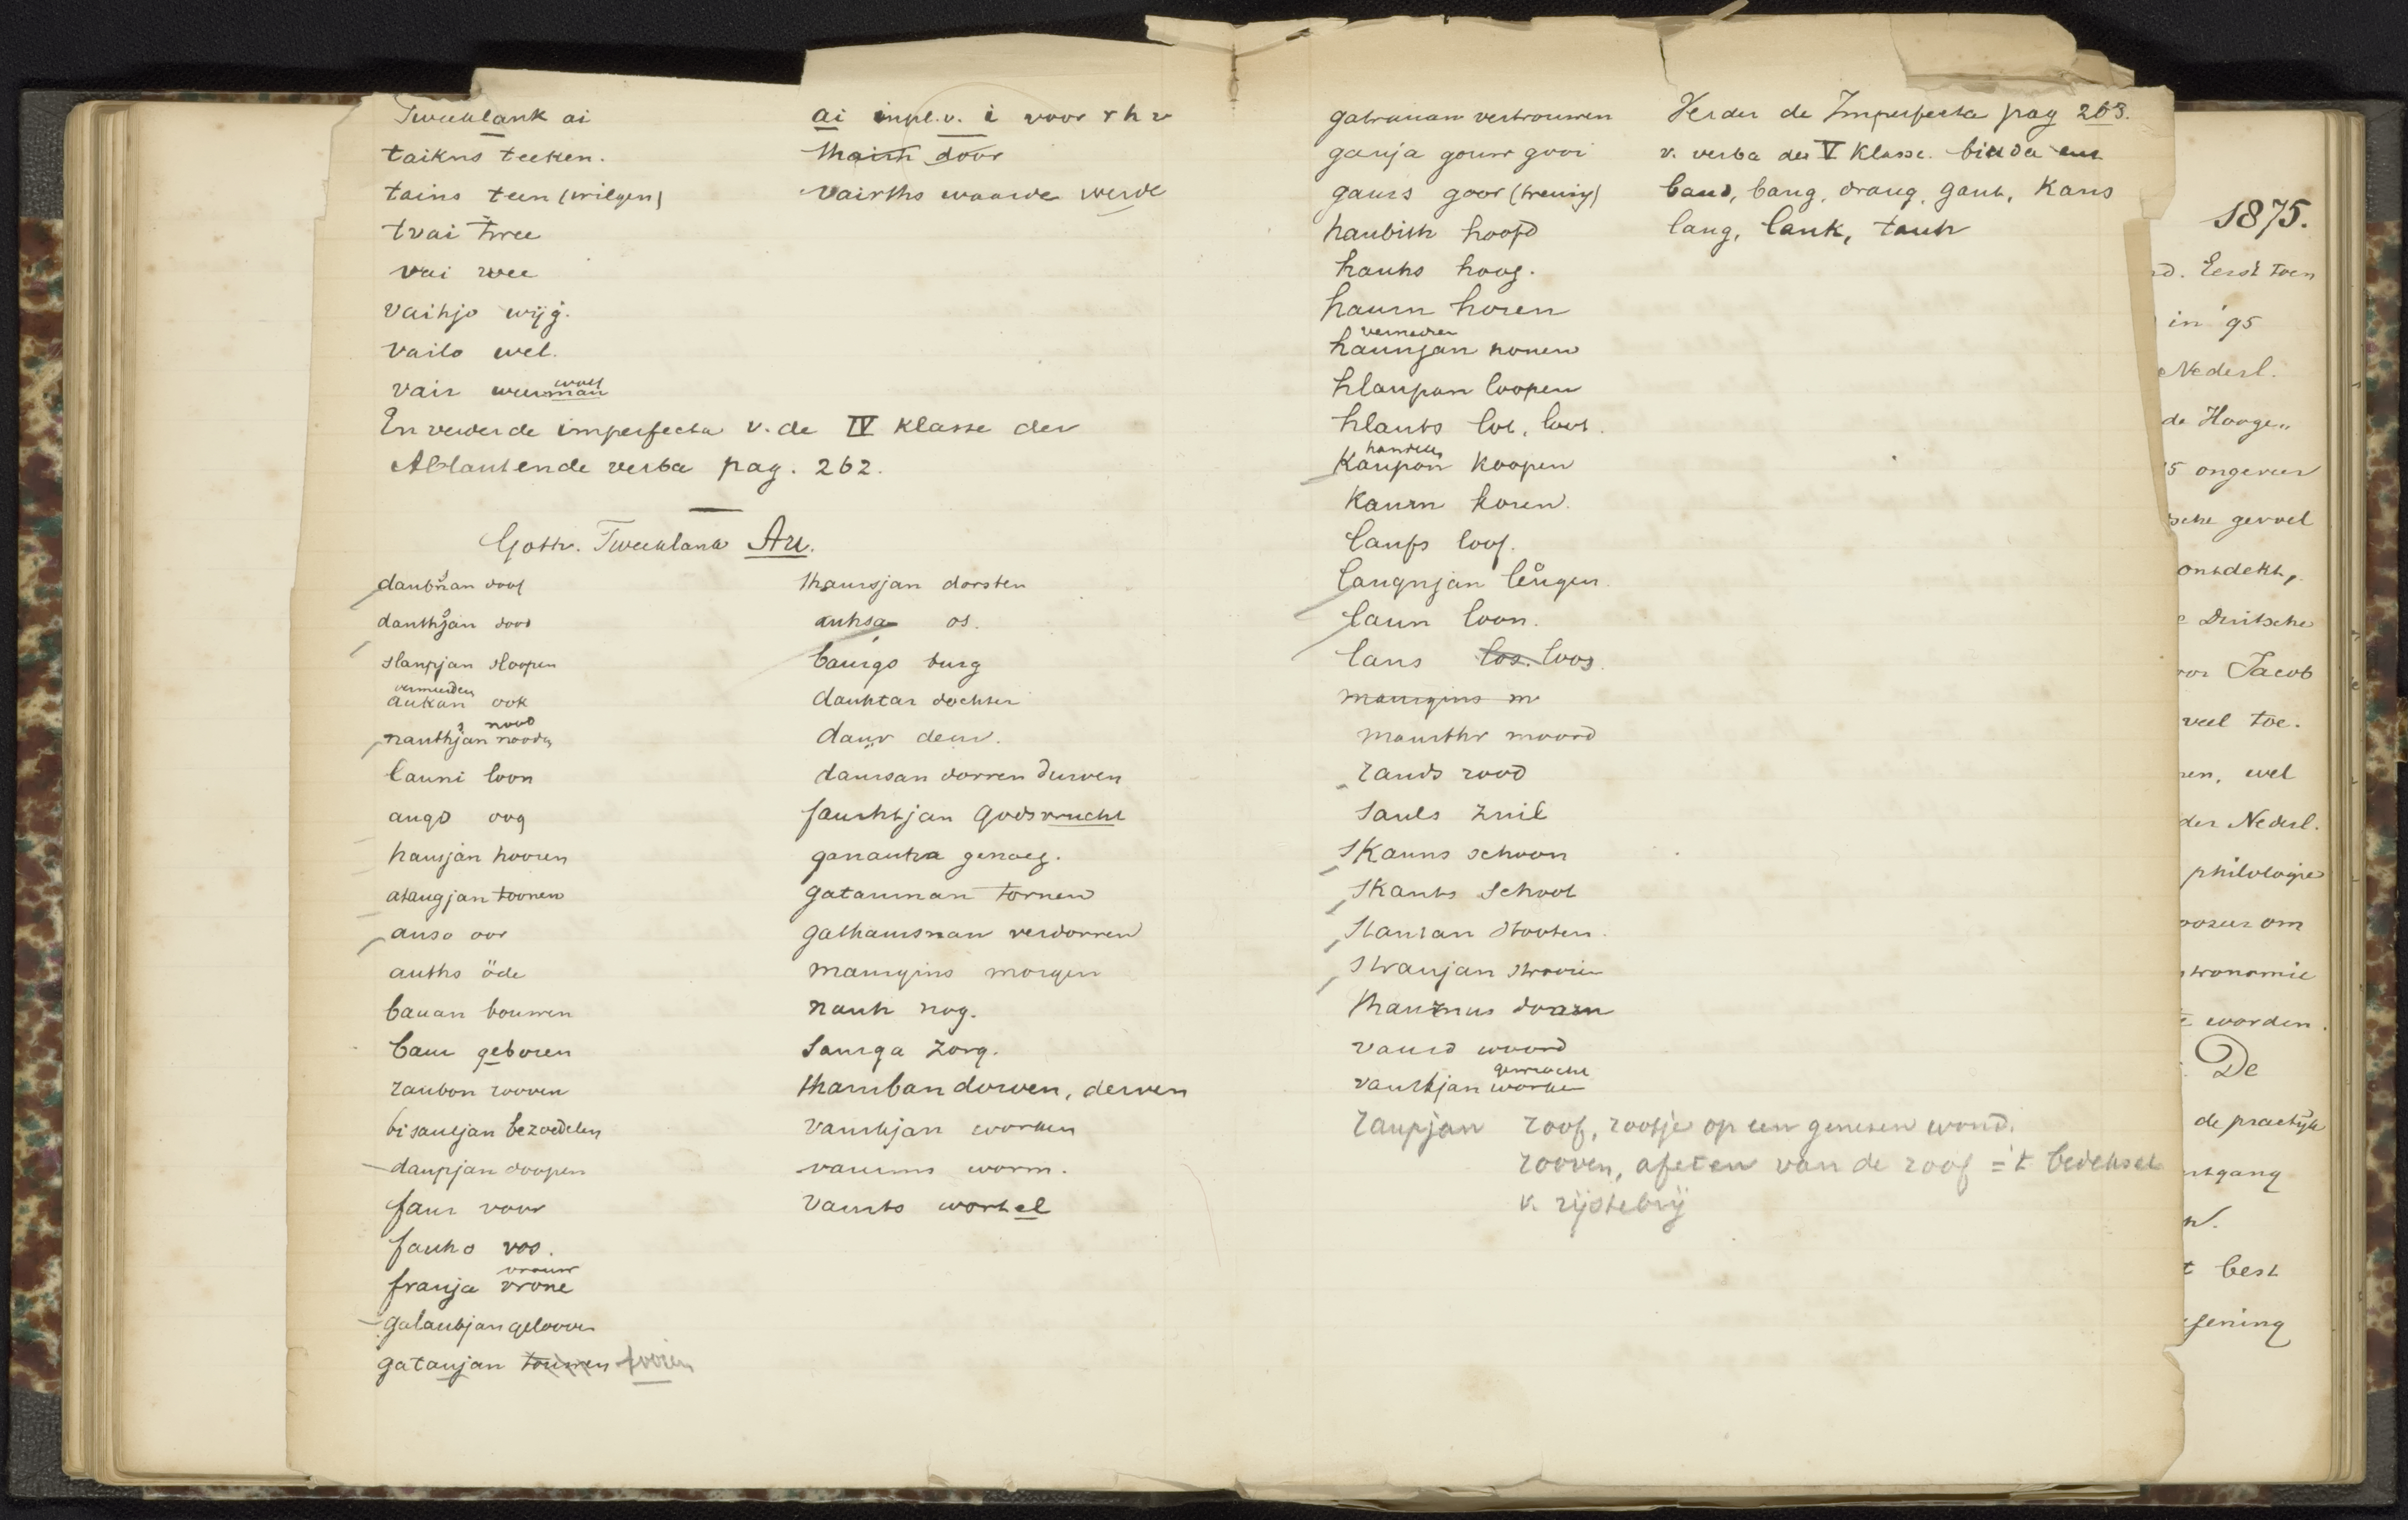 Tweeklank ai
taikns teeken.
tains teen (wilgen)
tvai twee
vai wee
vaihjo wijg.
vaila wel.
vair weerman
wolf
En verder de imperfecta v. de IV klasse der
Ablautende verba pag. 262.
ai inpl. v. i voor r h v
thairh door
vairths waarde werde
Goth. Tweeklank Au.
daubnan doof
dauthjan dood
slaupjan sloopen
vermeerderen
aukan ook
nood
nauthjan nooden
launi loon
augo oog
hausjan hooren
ataugjan toonen
auso oor
auths öde
bauan bouwen
baur geboren
raubon rooven
bisauljan bezoedelen
daupjan doopen
faur voor
fauho vos.
vrouw
frauja vrone
galaubjan gelooven
gataujan touwen tooien
thaursjan dorsten
auhsa os.
baurgs burg
dauhtar dochter
daur deur.
daursan dorren durven
faurhtjan Godsvrucht
ganauha genoeg.
gataurnan tornen
gathaursnan verdorren
maurgins morgen
nauh nog.
saurga zorg.
thaurban dorven, derven
vaurkjan worken
vaurms worm.
vaurts wortel
gatrauan vertrouwen
gauja gouw gooi
gaurs goor (treurig)
haubith hoofd
hauhs hoog.
haurn horen
vernederen
haunjan honen
hlaupan loopen
hlauts lot, loot.
handelen
kaupon koopen
kaurn koren.
laufs loof.
laugnjan leugen.
laun loon.
laus los. loos.
maurgins m
maurthr moord
rauds rood
sauls zuil
skauns schoon
skauts schoot
stautan stooten.
straujan strooien
thaurnus doorn
vaurd woord
gewrocht
vaurkjan worken
raupjan roof, roofje op een genezen wond.
rooven, afeten van de roof = 't bedeksel
v. rijstebrij
Verder de Imperfecta pag 263.
v. verba der V Klasse. binda en
band, bang, drang, gant, kans
lang, lank, tauh
1875.
Eerst toen
in '95
Nederl.
de Hooge"
ongeveer
gevoel
ontdekt,
Duitsche
Jacob
veel toe.
wel
der Nederl.
philologie
om
worden.
De
de practijk
best